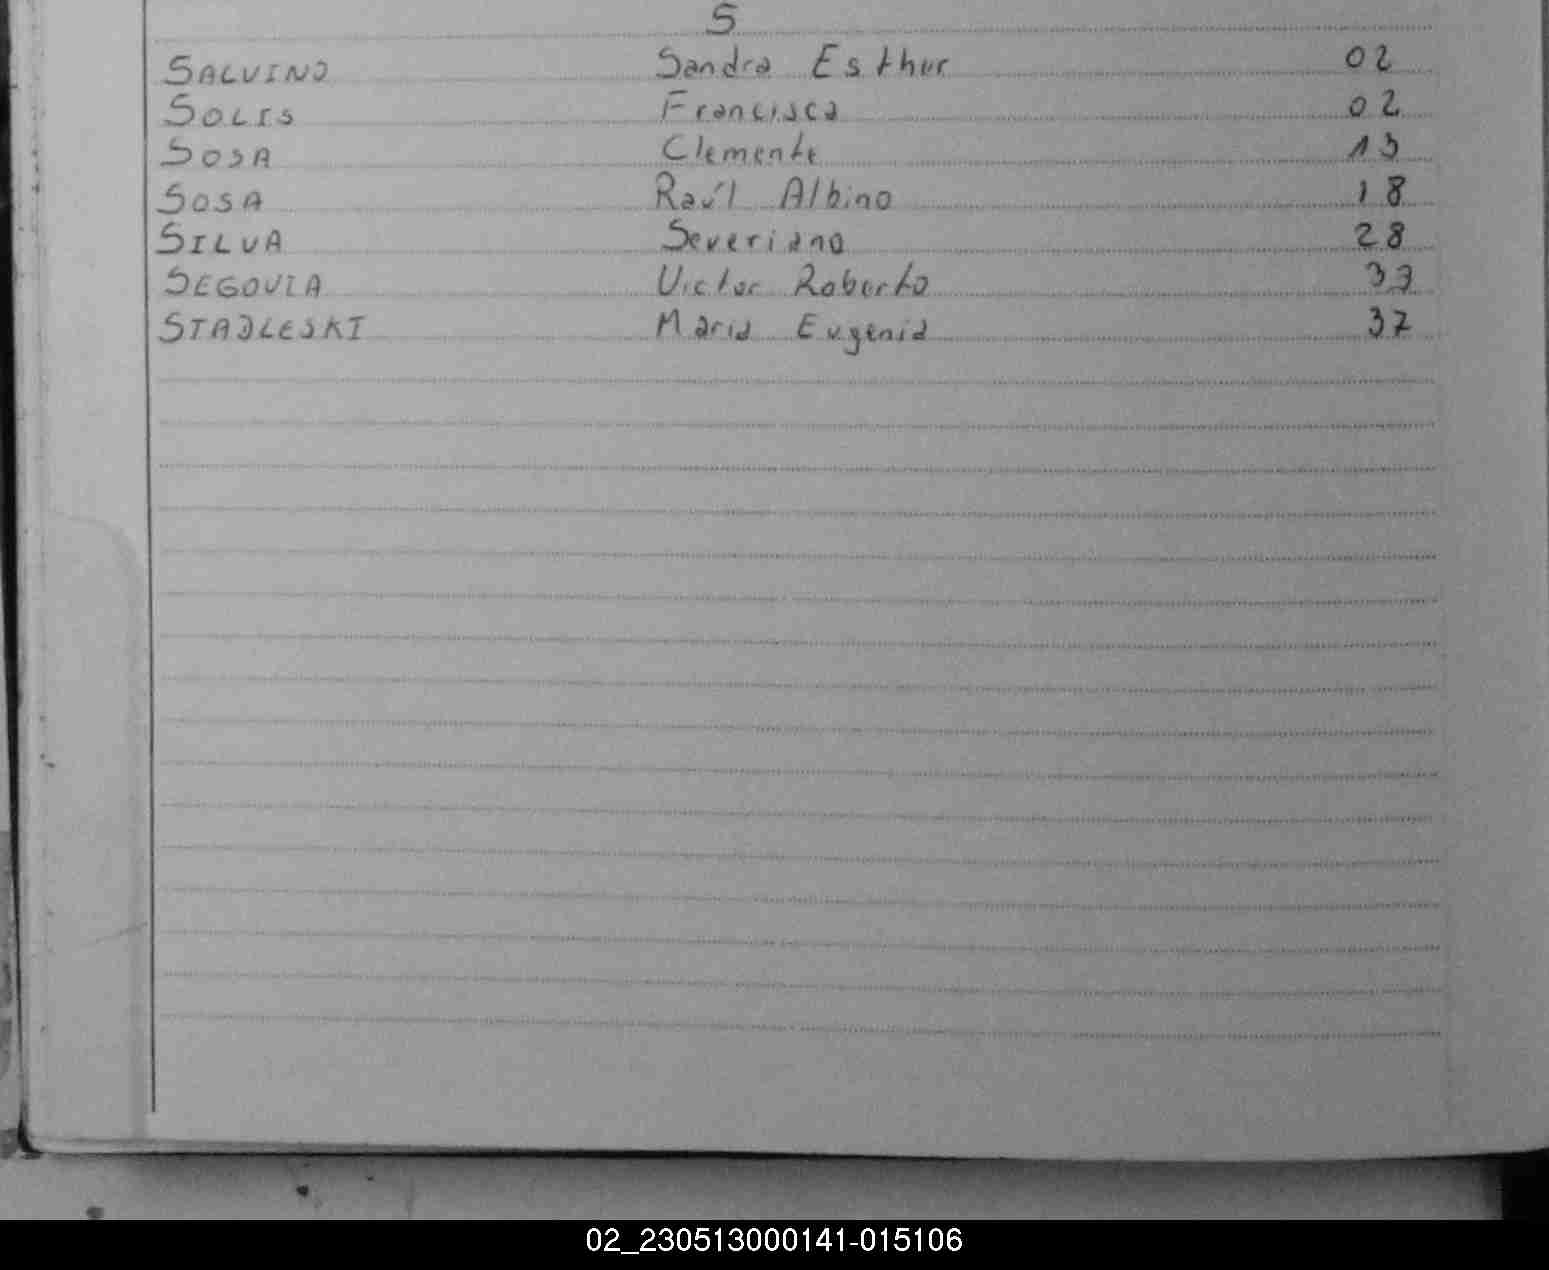 S
SALVINO Sandra Esther 02
SOLIS Francisca 02
SOSA Clemente 13
SOSA Raúl Albino 18
SILVA Severiano 28
SEGOVIA Victor Roberto 33
STADLESKI Maria Eugenia 37
02_230513000141-015106